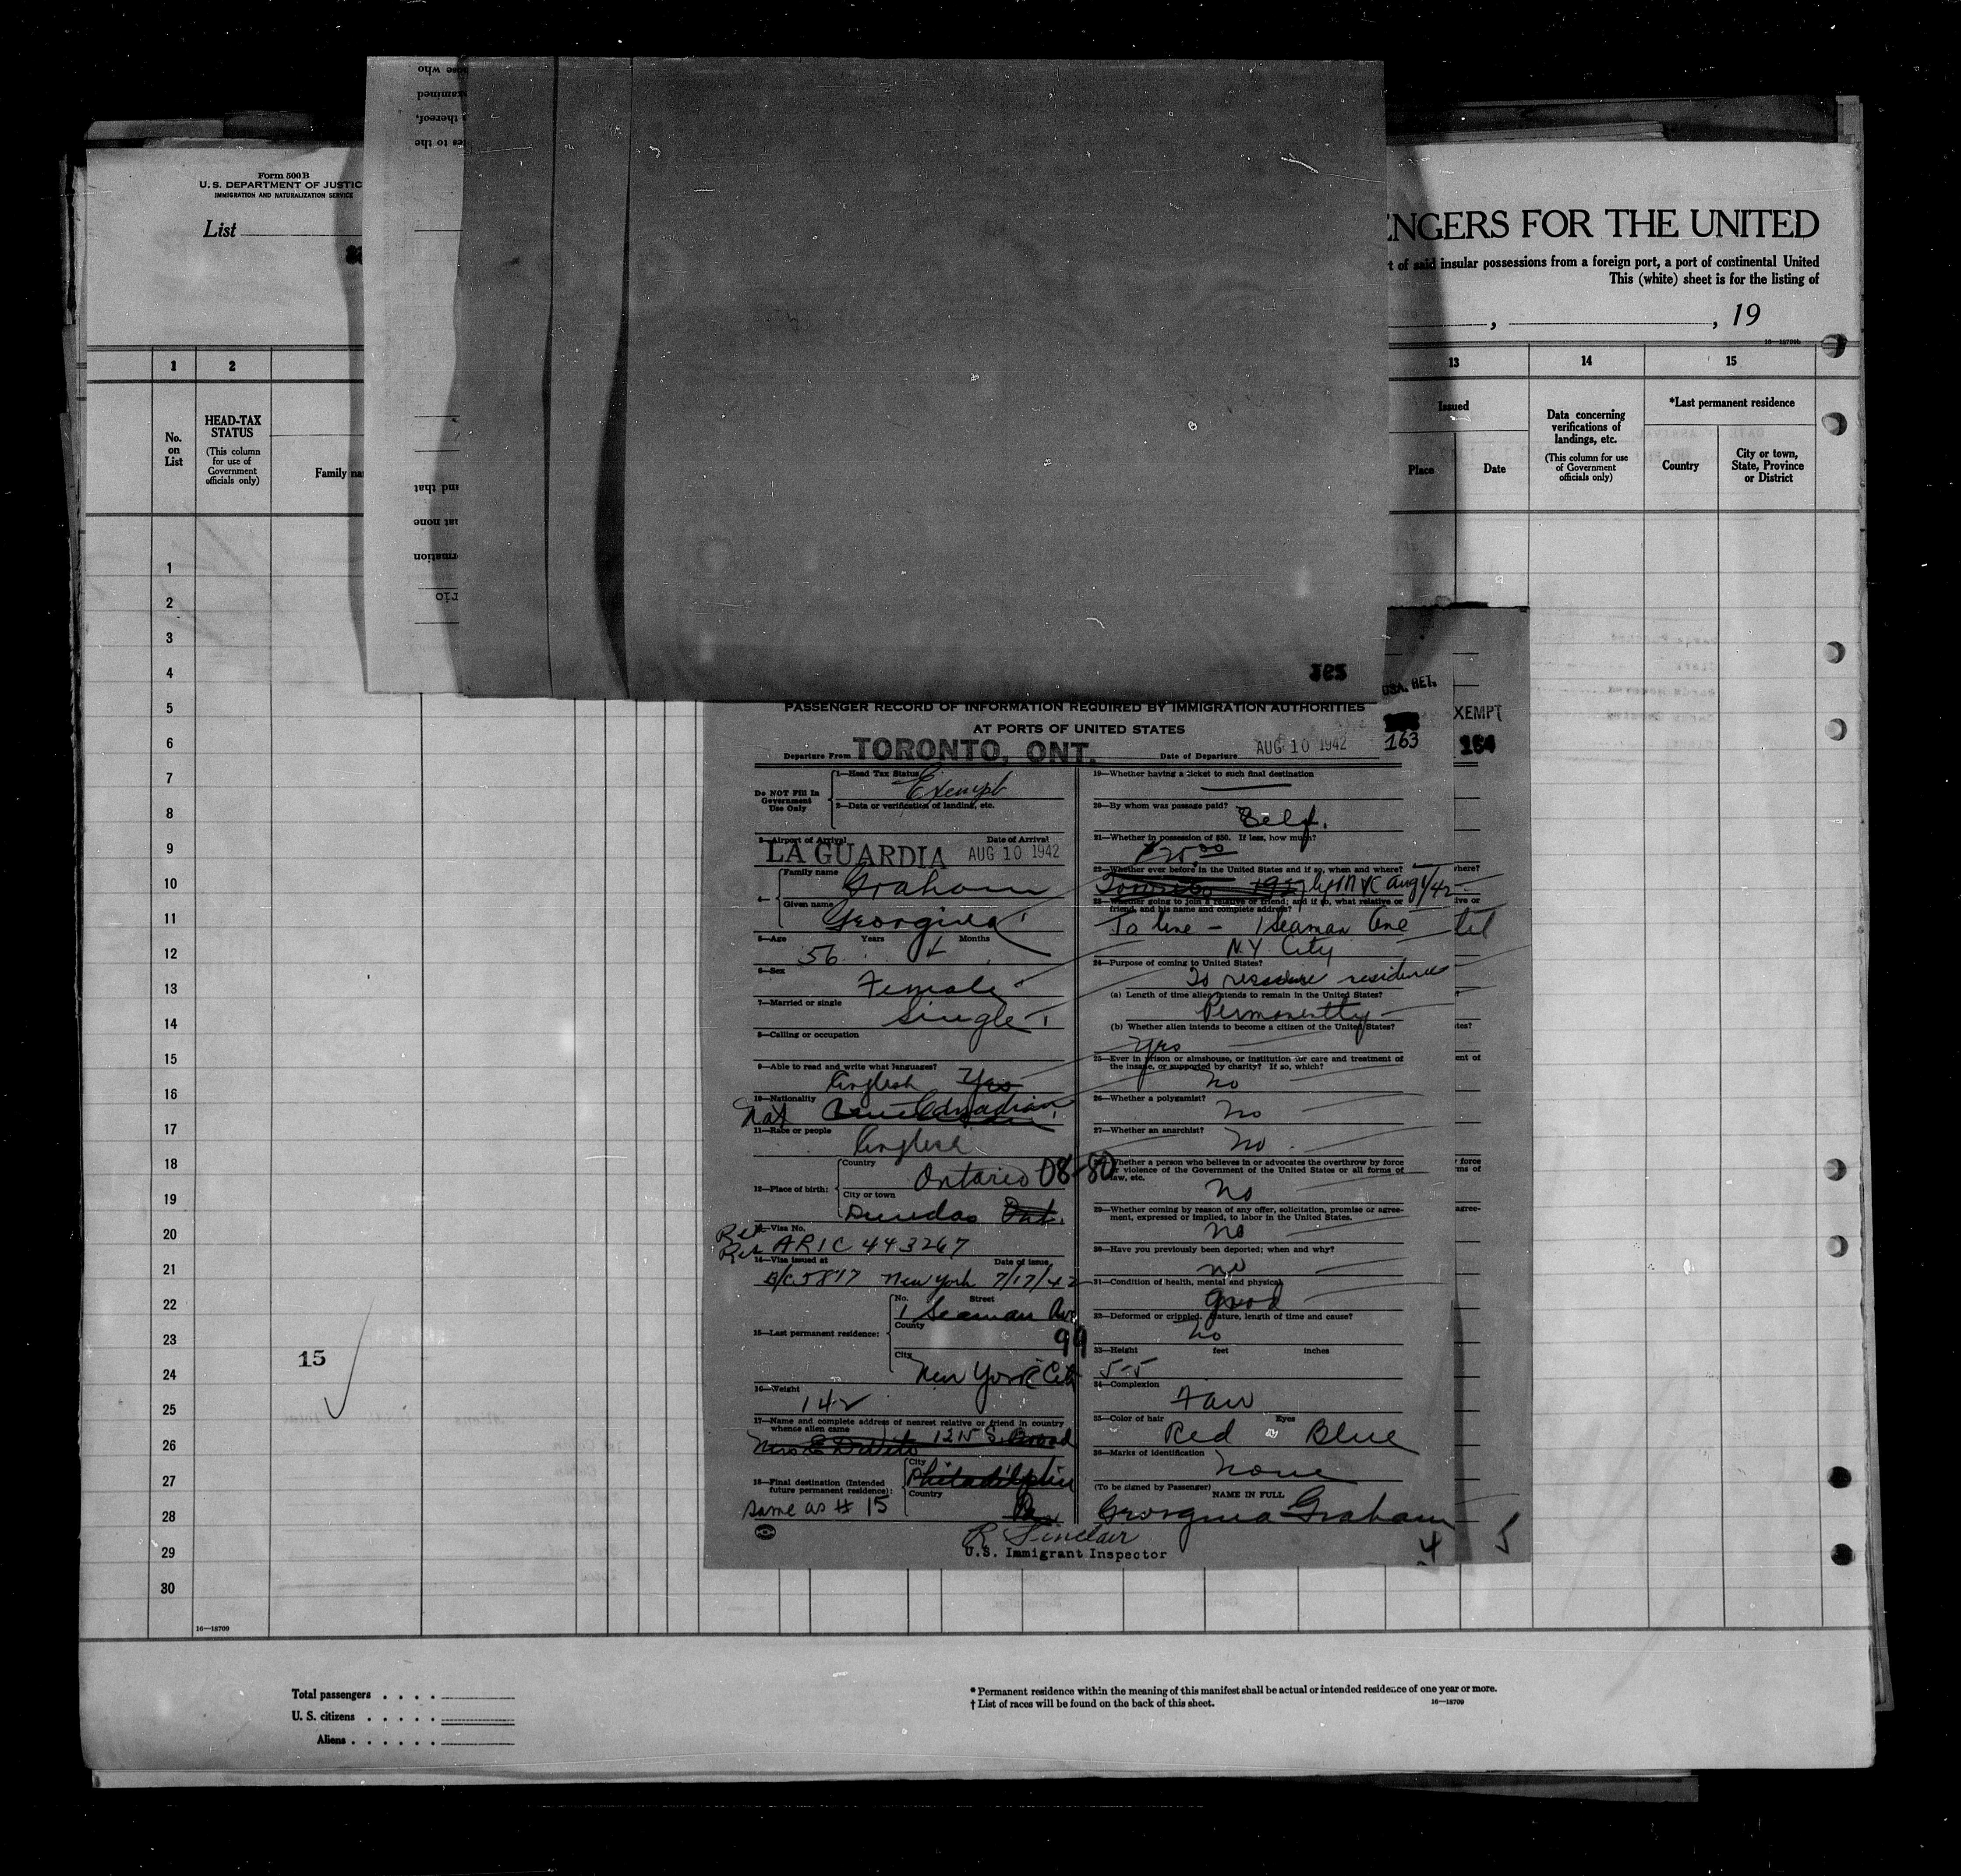 Form 500B
U. S. DEPARTMENT OF JUSTIC
IMMIGRATION AND NATURALIZATION SERVICE
List
ose who
xamined
thereof,
les to the
and that
hat none
rmation
rio
NGERS FOR THE UNITED
t of said insular possessions from a foreign port, a port of continental United
This (white) sheet is for the listing of
, , 19
16—18709b
1 2 13 14 15
No. on List
HEAD-TAX STATUS
(This column for use of Government officials only)
Family na
Issued
Place Date
Data concerning verifications of landings, etc.
(This column for use of Government officials only)
*Last permanent residence
Country
City or town, State, Province or District
1
2
3
4
5
6
7
8
9
10
11
12
13
14
15
16
17
18
19
20
21
22
23
24
25
26
27
28
29
30
15
16—18709
USA. RET.
PASSENGER RECORD OF INFORMATION REQUIRED BY IMMIGRATION AUTHORITIES
AT PORTS OF UNITED STATES
163
XEMPT
164
Departure From TORONTO, ONT. Date of Departure AUG 10 1942
Do NOT Fill In Government Use Only
1—Head Tax Status Exempt
2—Data or verification of landing, etc.
3—Airport of Arrival Date of Arrival
LA GUARDIA AUG 10 1942
4— Family name Graham
Given name Georgina
5—Age Years Months
56
6—Sex Female
7—Married or single Single
8—Calling or occupation
9—Able to read and write what languages?
English Yes
10—Nationality
Nat Canadian
11—Race or people English
12—Place of birth: Country Ontario 08-80
City or town Dundas Ont.
Visa No.
ARIC 443267
14—Visa issued at Date of issue
New York 7/17/42
15—Last permanent residence: No. Street
1 Seaman Ave
County
99
City New York City
16—Weight 142
17—Name and complete address of nearest relative or friend in country whence alien came
Mrs E DeVito 1215 S. Broad
18—Final destination (Intended future permanent residence): City Philadelphia
Country Pa
same as # 15
19—Whether having a ticket to such final destination
20—By whom was passage paid?
Self.
21—Whether in possession of $50. If less, how much?
22—Whether ever before in the United States and if so, when and where?
Toronto 1927 Aug 1/42
23—Whether going to join a relative or friend; and if so, what relative or friend, and his name and complete address?
To live — 1 Seaman Ave
N.Y. City
24—Purpose of coming to United States?
To resume residence
(a) Length of time alien intends to remain in the United States?
Permanently
(b) Whether alien intends to become a citizen of the United States?
Yes
25—Ever in prison or almshouse, or institution for care and treatment of the insane, or supported by charity? If so, which?
No
26—Whether a polygamist?
No
27—Whether an anarchist?
No
Whether a person who believes in or advocates the overthrow by force or violence of the Government of the United States or all forms of law, etc.
No
29—Whether coming by reason of any offer, solicitation, promise or agreement, expressed or implied, to labor in the United States.
No
30—Have you previously been deported; when and why?
No
31—Condition of health, mental and physical
Good
32—Deformed or crippled. Nature, length of time and cause?
No
33—Height feet inches
5-5
34—Complexion
Fair
35—Color of hair Eyes
Red Blue
36—Marks of identification
None
(To be signed by Passenger) NAME IN FULL
Georgina Graham
R Sinclair
U.S. Immigrant Inspector
4 5
Total passengers . . . .
U. S. citizens . . . . .
Aliens . . . . . .
* Permanent residence within the meaning of this manifest shall be actual or intended residence of one year or more.
† List of races will be found on the back of this sheet. 16—18709